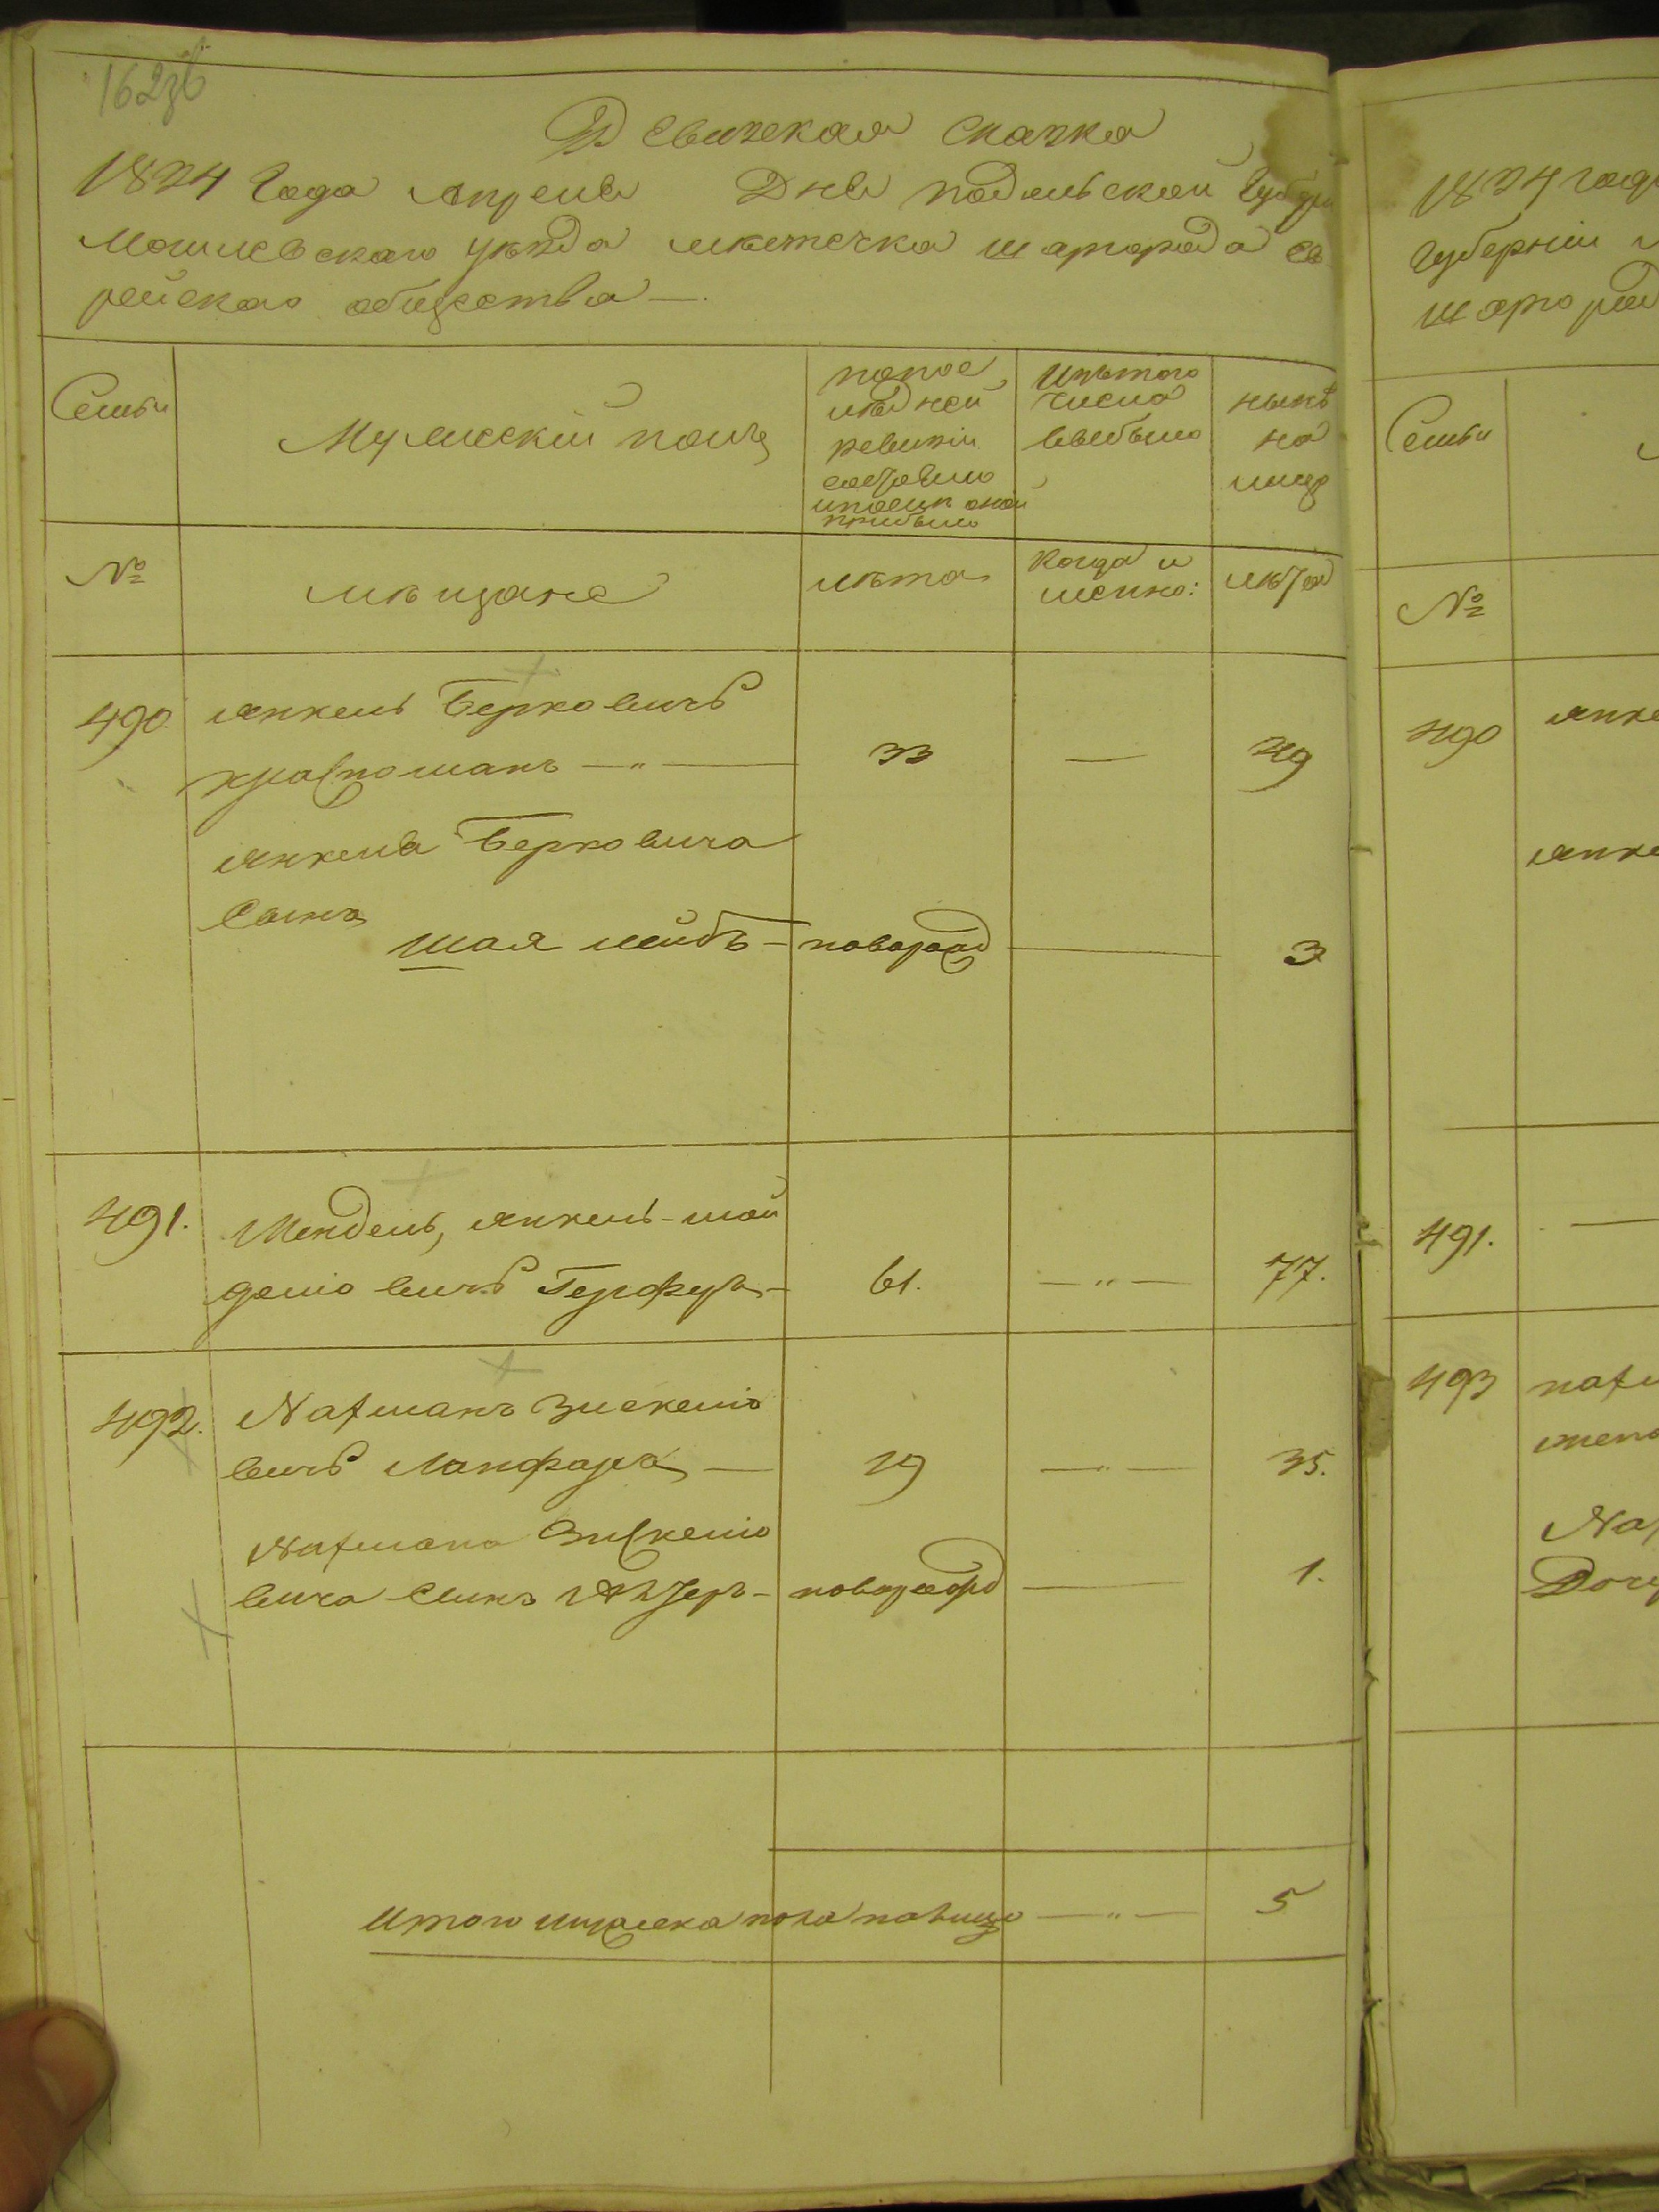 162зв
Ревизская Сказка
1834 Года Апреля Дня подольской Губер
Могилевского уѣзда мѣстечка шаргорода ев
рейского общества —.
Семьи
Мужеский полъ
попос
лѣдней
ревизіи
состояло
и после оной
прибыло
Изътого
числа
выбыло
нынѣ
на
лице
№
мѣщане
лѣта
когда и
менно:
лѣта
490
янкель Берковичъ
33
—
49
янкеля Берковича
Сынъ
шая лейбъ —
новорожд
—
3
491.
Мендель, янкель-шай
Герфуръ —
61.
— " —
77.
492.
Nахманъ Зискелio
вичъ Ланфаръ —
19
— " —
35.
Nахмана Зискелio
вича Сынъ —
новорожд
—
1.
Итого мужеска пола налицо — " —
5
1834 года
Губерніи
шаргород
Семьи
№
490
янке
янке
491.
—
493
нахм
жена
Nах
Дочь